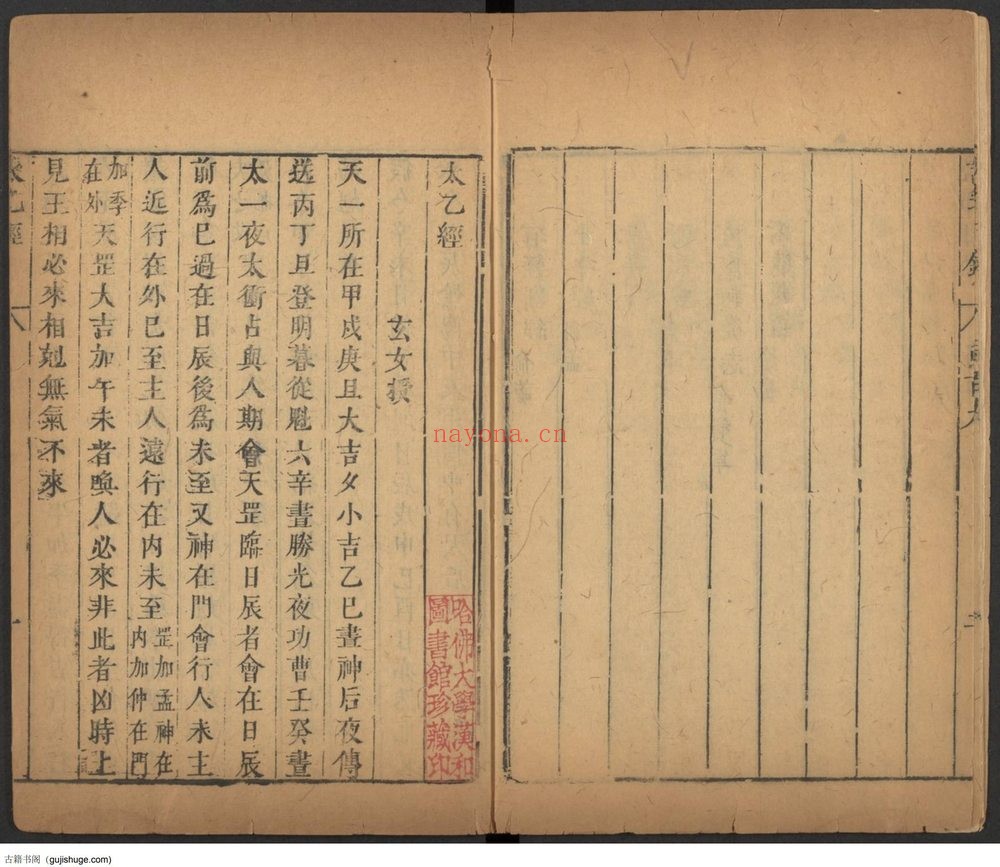 太乙經
玄女授
天一所在甲戍庚旦大吉夕小吉乙巳晝神后夜傳
送丙丁旦登明暮從魁六辛晝勝光夜功曹壬癸晝
太一夜太衝占與人期會天罡臨日辰者會在日辰
前爲已過在日辰後爲未至又神在門會行人未主
人近行在外已至主人遠行在内未至罡加孟神在
内加仲在門
加季
在外天罡大吉加午未者喚人必來非此者凶時上
見王相必來相剋無氣不來
太乙經
一
哈佛大學漢和
圖書館珍藏印
nayona.cn
古籍书阁（gujishuge.com）